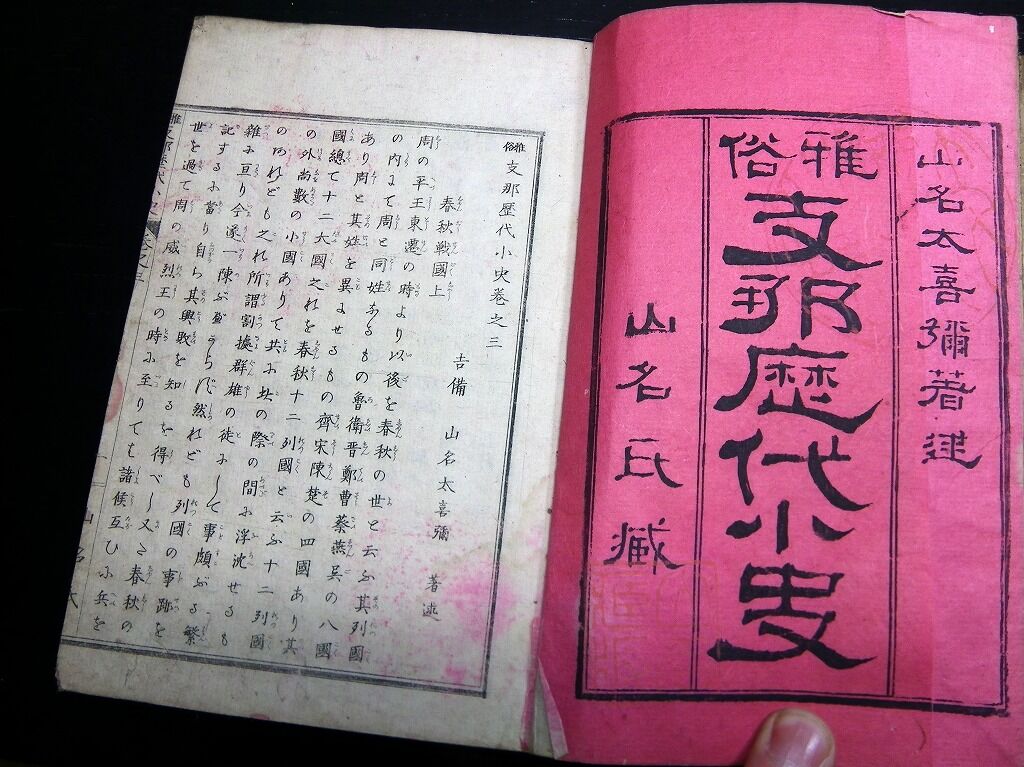 山名太喜彌著述
雅俗
支那歴代小史
山名氏藏
雅俗支那歴代小史巻之三
吉備 山名太喜彌 著述
春秋戰國上
周の平王東遷の時より以後を春秋の世と云ふ其列國
の内にて周と同姓あるもの魯衛晋鄭曹蔡燕吳の八國
あり周と其姓を異にせるもの齊宋陳楚の四國あり其
國總て十二大國之れを春秋十二列國と云ふ十二列國
の外尚數の小國ありて共に此の際の間に浮沈せるも
のあれども之れ所謂割據群雄の徒にして事頗ぶる繁
雜に亘り今逐一陳ぶ可らず然れども列國の事跡を
記するに當り自ら其興敗を知るを得べし又た春秋の
世を過て周の威烈王の時に至りても諸侯互ひに兵を